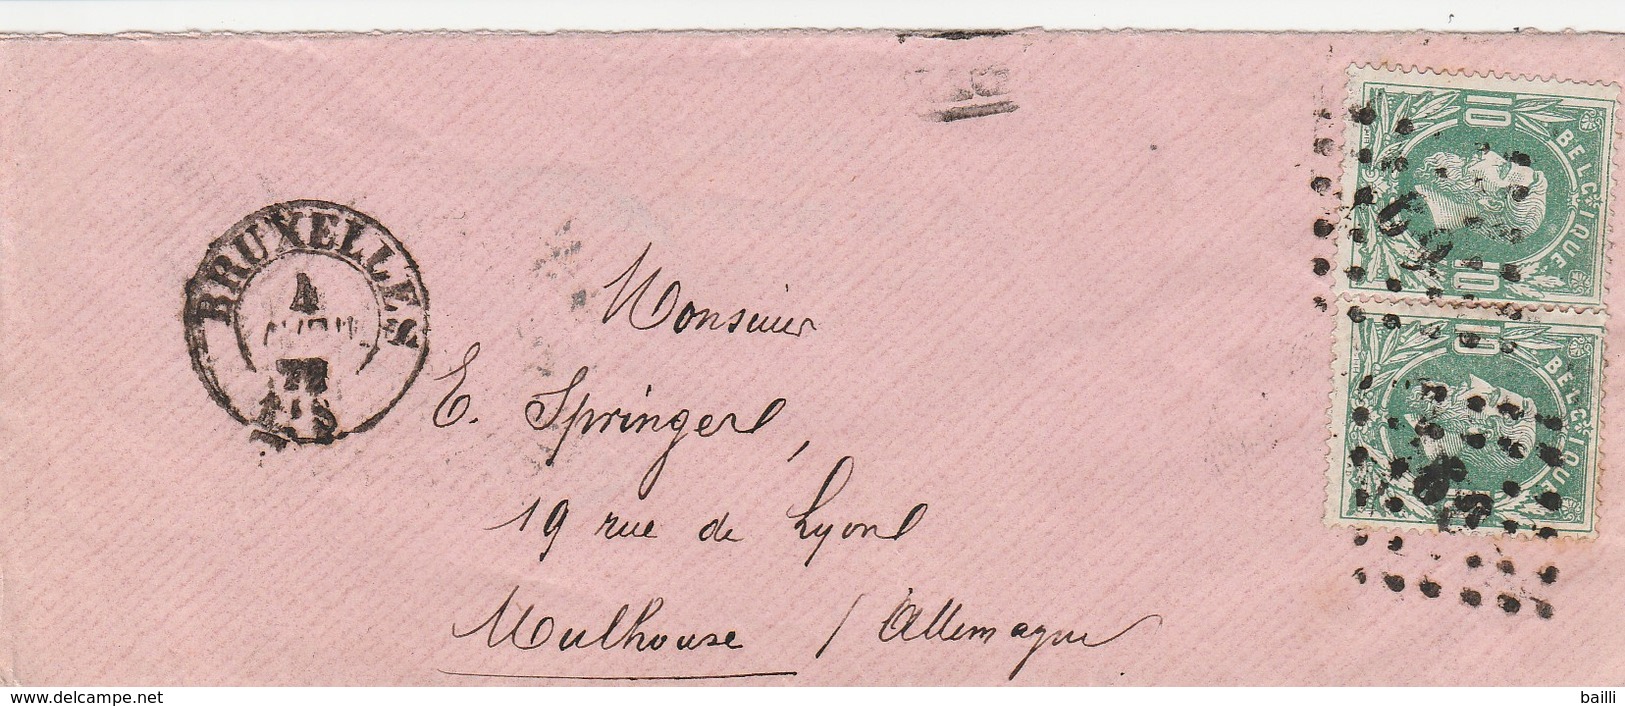 BRUXELLES
4
AVRIL
78
Monsieur
E. Springer,
19 rue de Lyon
Mulhouse / Allemagne
10 BELGIQUE 10
10 BELGIQUE
www.delcampe.net
bailli